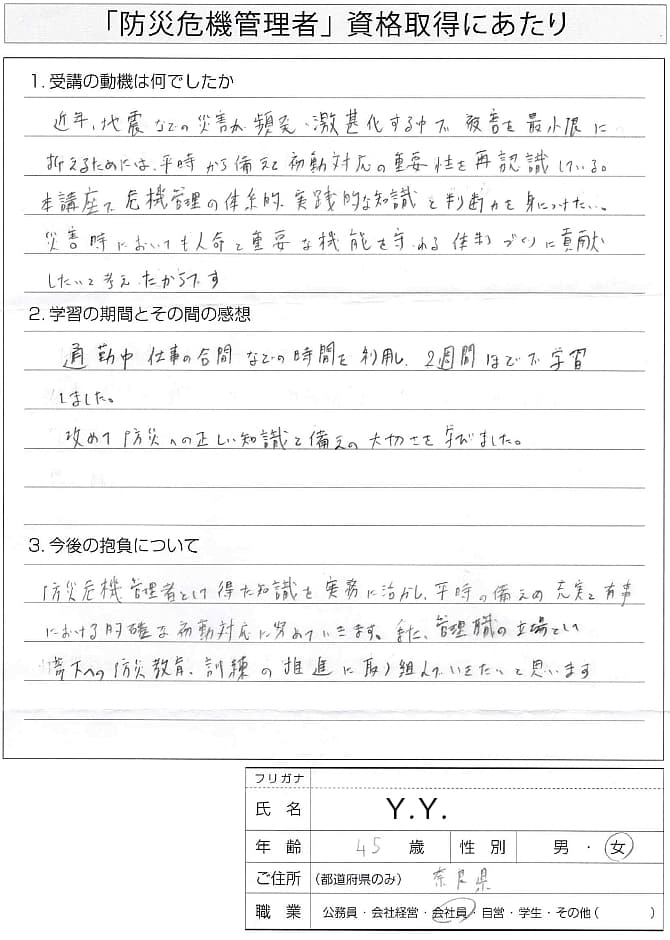 「防災危機管理者」資格取得にあたり
1. 受講の動機は何でしたか
近年、地震などの災害が頻発・激甚化する中で 被害を最小限に
抑えるためには、平時から備えと初動対応の重要性を再認識している。
本講座で 危機管理の体系的、実践的な知識と判断力を身につけたい。
災害時においても人命と重要な機能を守れる体制づくりに貢献
したいと考えたからです
2. 学習の期間とその間の感想
通勤中 仕事の合間などの時間を利用し、2週間ほどで学習
しました。
攻めて防災への正しい知識と備えの大切さを学びました。
3. 今後の抱負について
防災危機管理者として得た知識を実務に活かし、平時の備えの充実と有事
における的確な初動対応に努めていきます。また、管理職の立場として
下への防災教育、訓練の推進に取り組んでいきたいと思います
フリガナ
氏 名 Y.Y.
年 齢 45 歳 性 別 男 ・ 女
ご住所 (都道府県のみ) 奈良県
職 業 公務員・会社経営・会社員・自営・学生・その他( )